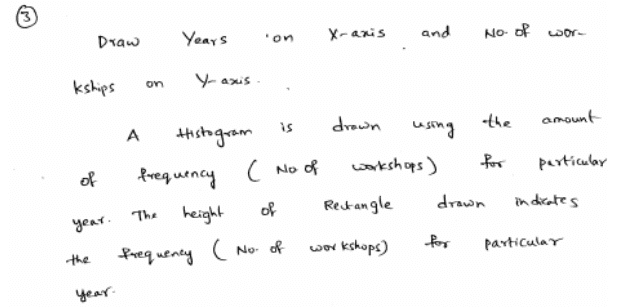 ③
Draw Years on X-axis and No. of wor-
kships on Y-axis.
A Histogram is drawn using the amount
of frequency ( No of workshops) for particular
year. The height of Rectangle drawn indicates
the frequency ( No. of workshops) for particular
year.